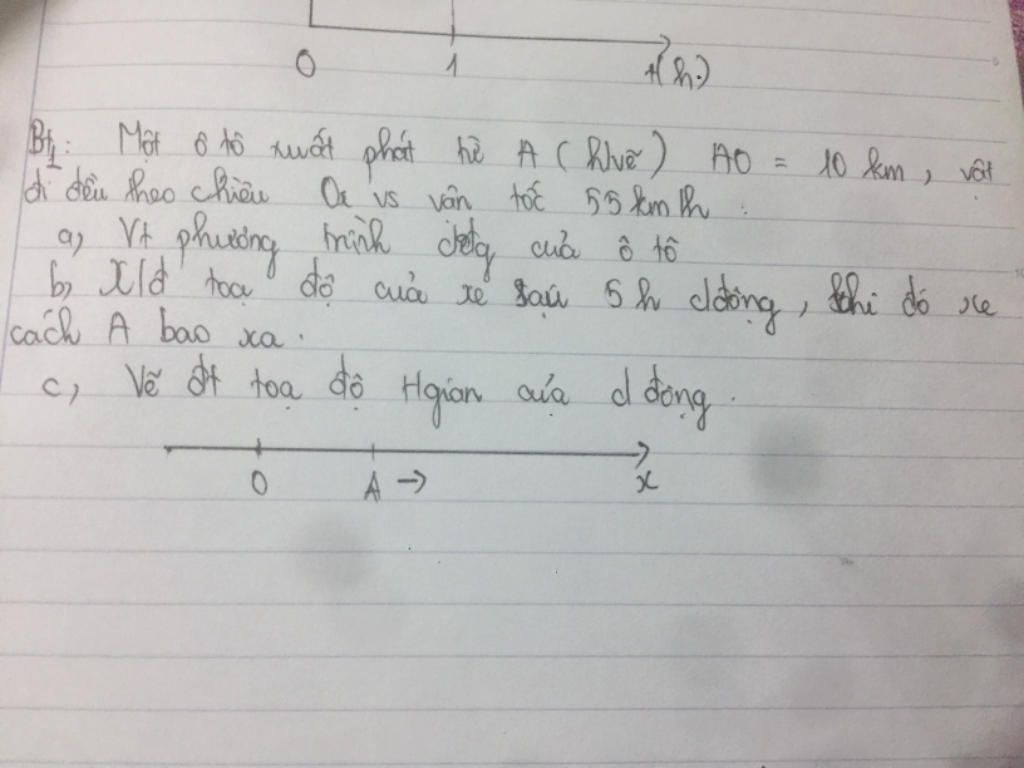 0 1 t(h)
Bt1: Một ô tô xuất phát từ A (hvẽ) AO = 10 km, vật
đi đều theo chiều Ox vs vân tốc 55 km/h.
a, Vt phương trình của ô tô
b, X/đ toạ độ của xe sau 5h dđộng, khi đó xe
cách A bao xa.
c, Vẽ đt toạ độ tgian của dđộng.
O A → x